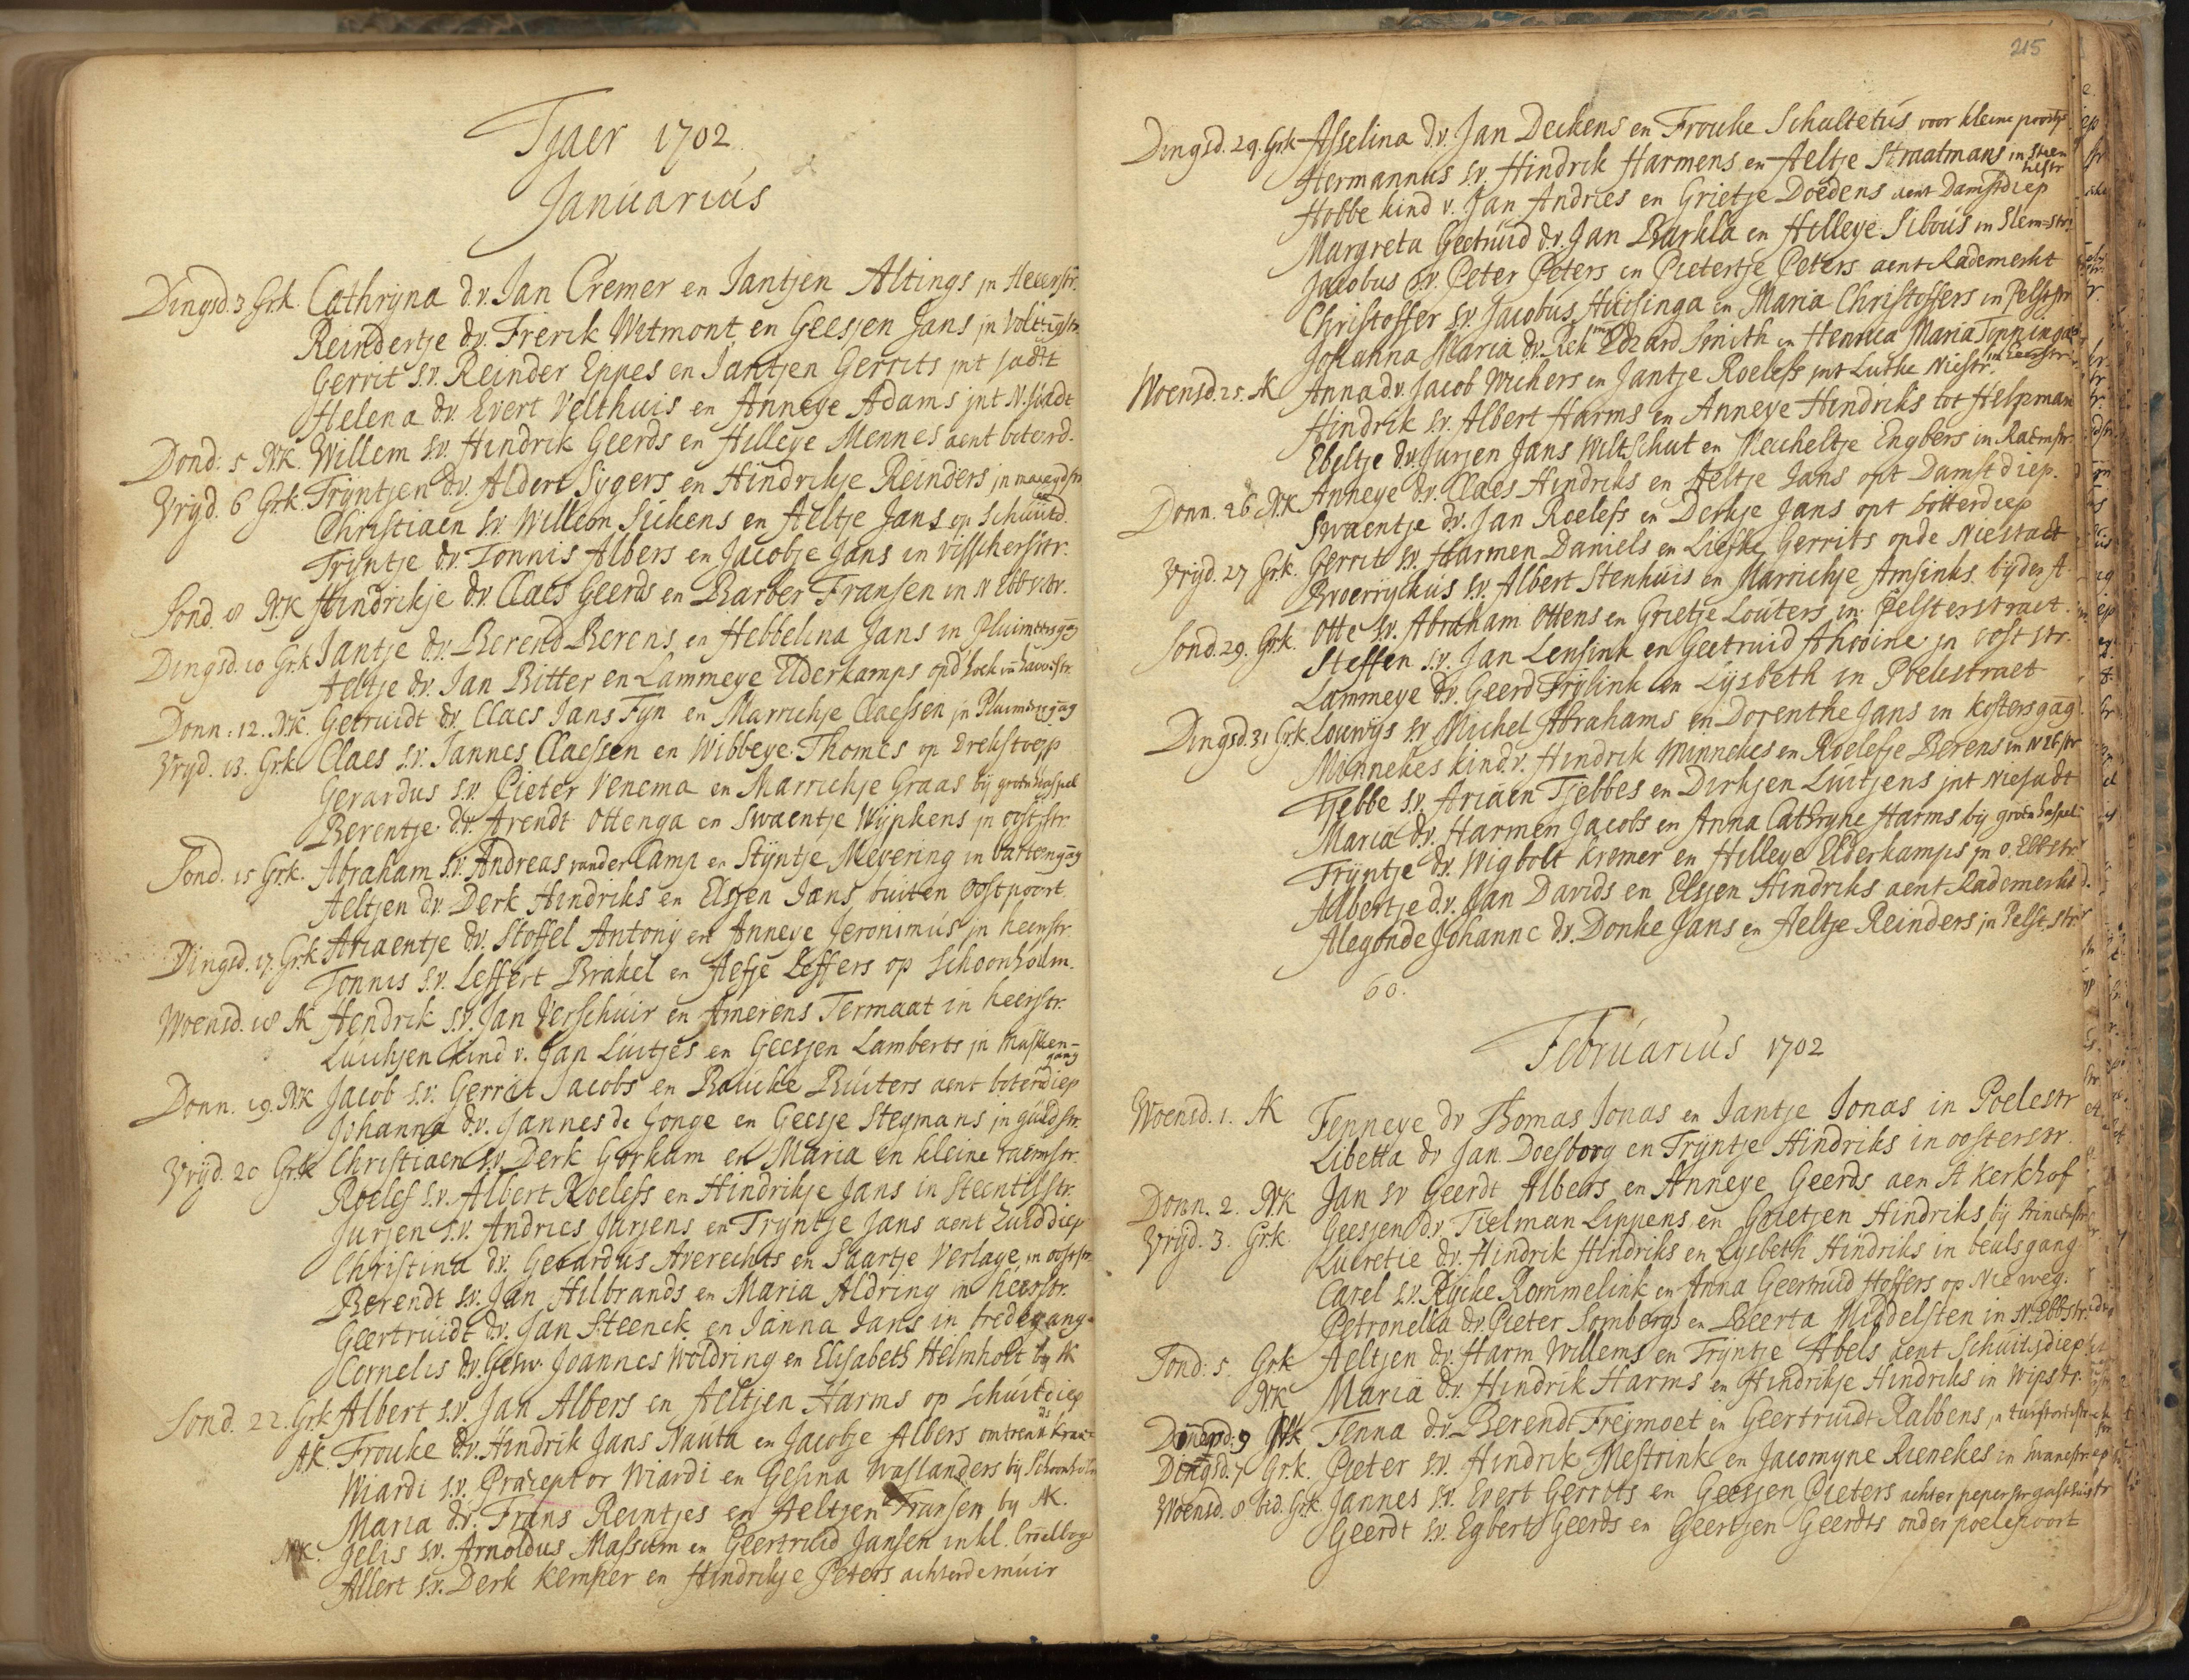 Tjaer 1702
Januarius
Dingsd. 3 Grk. Cathryna d.v. Jan Cremer en Jantjen Altings jn Heerestr.
Reindertje d.v. Frerik Wetmont en Geesjen Jans jn Volttingstr
Gerrit s.v. Reinder Eppes en Jantjen Gerrits jnt
Helena d.v. Evert Velthuis en Anneye Adams jnt N. stadt
Dond: 5 NK. Willem s.v. Hindrik Geerds en Hilleye Mennes aent boterd.
Vryd. 6 Grk. Tryntjen d.v. Aldert Sygers en Hindrikje Reinders jn
Christiaen s.v. Willem Sickens en Aeltje Jans op Schuitd.
Tryntje d.v. Tonnis Albers en Jacobje Jans in Visscherstr.
Sond. 8 NK Hindrikje d.v. Claes Geerds en Barber Fransen in N Ebbestr.
Dingsd. 10 Grk Jantje d.v. Berend Berens en Hebbelina Jans in Pluimersgag
Aeltje d.v. Jan Ritter en Lammeye Elderkamps opd hoek
Donn: 12. NK. Getruidt d.v. Claes Jans Fyn en Marrichje Claessen jn Pluimersgag
Vryd. 13. Grk Claes s.v. Jannes Claessen en Wibbeye Thomes op Drekstoep
Gerardus s.v. Pieter Venema en Marrichje Graas bij groen haspel
Berentje d.v. Arendt Ottenga en Swaentje Wypkens jn ooststr.
Sond. 15 Grk. Abraham s.v. Andreas vander Camp en Styntje Meyering in
Aeltjen d.v. Derk Hindriks en Elsjen Jans buiten Oostpoort.
Dingsd. 17. Grk Ariaentje d.v. Stoffel Antony en Anneye Jeronimus jn heerstr
Tonnis s.v. Leffert Brakel en Aefje Leffers op Schoonholm.
Woensd. 18 AK Hendrik s.v. Jan Verschuir en Amerens Termaat in heerstr.
Luichjen kind v. Jan Luitjes en Geesjen Lamberts jn Mussen-
gang
Donn. 19. NK Jacob s.v. Gerrit Jacobs en Baucke Buiters aent boterdiep
Johanna d.v. Jannes de Jonge en Geesje Stegmans jn guldstr.
Vryd. 20 Grk Christiaen s.v. Derk Gorkum en Maria en kleine raemstr.
Roelef s.v. Albert Roelefs en Hindrikje Jans in Steentilstr.
Jurjen s.v. Andries Jurjens en Tryntje Jans aent Zuiddiep
Christina d.v. Gerardus Averechts en Saartje Verlage in ooststr
Berendt s.v. Jan Hilbrands en Maria Aldring in heerstr.
Geertruidt d.v. Jan Steenck en Janna Jans in bredegang
Cornelis d.v. Gesw. Joannes Woldring en Elisabeth Helmholt by AK
Sond. 22. Grk Albert s.v. Jan Albers en Aeltjen Harms op Schuitdiep
AK. Frouke d.v. Hindrik Jans Nauta en Jacobje Albers omtrent
Wiardi s.v. Præceptor Wiardi en Gesina Waslanders bij Schoonholm
Maria d.v. Frans Reintjes en Aeltjen Fransen by AK.
NK. Jelis s.v. Arnoldus Massum en Geertruid Jansen in kl.
Allert s.v. Derk Kemper en Hindrikje Peters achter de muir
215
Dingsd. 24. Grk Asselina d.v. Jan Deckens en Frouke Schultetus voor kleine poortje
Hermannus s.v. Hindrik Harmens en Aeltje Straatmans in Steen
tilstr
Hobbe kind v. Jan Andries en Grietje Doedens aent Damsterdiep
Margreta Geetruid d.v. Jan Barkla en Hilleye Sibous in
Jacobus s.v. Peter Peters en Pietertje Peters aent Rademerkt
Christoffer s.v. Jacobus Huisinga en Maria Christoffers in Pelsstr
Johanna Maria d.v. Edzard Smith en Henrica Maria Tinninga
in heerstr
Woensd. 25. AK Anna d.v. Jacob Wichers en Jantje Roelefs jnt Lutke Niestr.
Hindrik s.v. Albert Harms en Anneye Hindriks tot Helpman
Ebeltje d.v. Jurjen Jans Wiltschut en Mecheltje Engbers in Raemstr
Donn. 26 NK Anneye d.v. Claes Hindriks en Aeltje Jans opt Damstdiep.
Swaentje d.v. Jan Roelefs en Derkje Jans opt botterdiep
Vryd. 27 Grk. Gerrit s.v. Harmen Daniels en Liefke Gerrits onde Niestadt
Broerryckus s.v. Albert Stenhuis en Marrichje Amsinks bijder A
Sond. 29. Grk. Otte s.v. Abraham Ottens en Grietje Louters in Pelsterstraet.
Steffen s.v. Jan Lensink en Geetruid Ahroine jn ooststr.
Lammeye d.v. Geerd Frylink en Lysbeth in Poelestraet
Dingsd. 31 Grk. Louwys s.v. Michel Abrahams en Dorenthe Jans in kostersgag
Minnekes kind. v. Hindrik Minnekes en Roelefje Berens in
Tjebbe s.v. Ariaen Tjebbes en Dirkjen Luitjens jnt Niestadt
Maria d.v. Harmen Jacobs en Anna Cathryne Harms bij groen haspel
Tryntje d.v. Wigbolt kremer en Hilleye Elderkamps jn o. Ebbstr
Albertje d.v. Jan Davids en Elsjen Hindriks aent Rademerkt
Alegonde Johanne d.v. Donke Jans en Aeltje Reinders jn Pelst. str.
60.
Februarius 1702
Woensd. 1. AK Fenneye dv Thomas Jonas en Jantje Jonas in Poelestr
Libetta dv Jan Doesborg en Tryntje Hindriks in oosterstr.
Donn. 2. NK Jan sv Geerdt Albers en Anneye Geerds aen A kerkhof
Vryd. 3. Grk. Geesjen d.v. Tielman Lippens en Grietjen Hindriks bij
Lucretie d.v. Hindrik Hindriks en Lysbeth Hindriks in beulsgang
Carel s.v. Rycke Rommelink en Anna Geertruid Hoffers op Nieweg.
Petronella d.v. Pieter Sombergh en Beerta Middelsten in N. Ebbstr.
Sond: 5. Grk Aeltjen d.v. Harm Willems en Tryntje Abels aent Schuitsdiep
NK Maria d.v. Hindrik Harms en Hindrikje Hindriks in Wipstr.
9 NK Fenna d.v. Berendt Freymoet en Geertruidt Rabbens jn
Dingsd. 7 Grk. Pieter s.v. Hindrik Mestrink en Jacomyne Rienekes in
Woensd. 8 bid. Grk. Jannes s.v. Evert Gerrits en Geesjen Pieters achter peperstr gasthuis
Geerdt s.v. Egbert Geerds en Geertjen Geerdts onder poelepoort